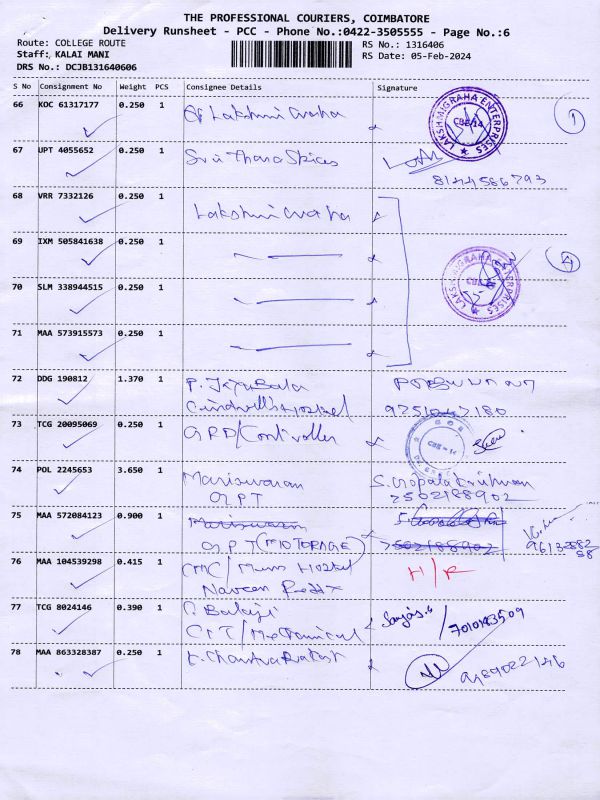 THE PROFESSIONAL COURIERS, COIMBATORE
Delivery Runsheet - PCC - Phone No.:0422-3505555 - Page No.:6
Route: COLLEGE ROUTE RS No.: 1316406
Staff: KALAI MANI RS Date: 05-Feb-2024
DRS No.: DCJB131640606
S No Consignment No Weight PCS Consignee Details Signature
66 KOC 61317177 0.250 1
LAKSHMIGRAHA ENTERPRISES CBE-14
1
67 UPT 4055652 0.250 1
8144586793
68 VRR 7332126 0.250 1
69 IXM 505841638 0.250 1
4
70 SLM 338944515 0.250 1
LAKSHMIGRAHA ENTERPRISES
71 MAA 573915573 0.250 1
72 DDG 190812 1.370 1
Hostel
73 TCG 20095069 0.250 1 GRD/Controller
CBE-14
74 POL 2245653 3.650 1 Mariswaran S. Gopala Krishnan
GPT 7502188902
75 MAA 572084123 0.900 1 Mariswaran
GPT 7502188902
76 MAA 104539298 0.415 1 CMC/Mens Hostel H/R
Naveen Reddy
77 TCG 8024146 0.390 1 P. Balaji
CIT/Mechanical
78 MAA 863328387 0.250 1
9489022146